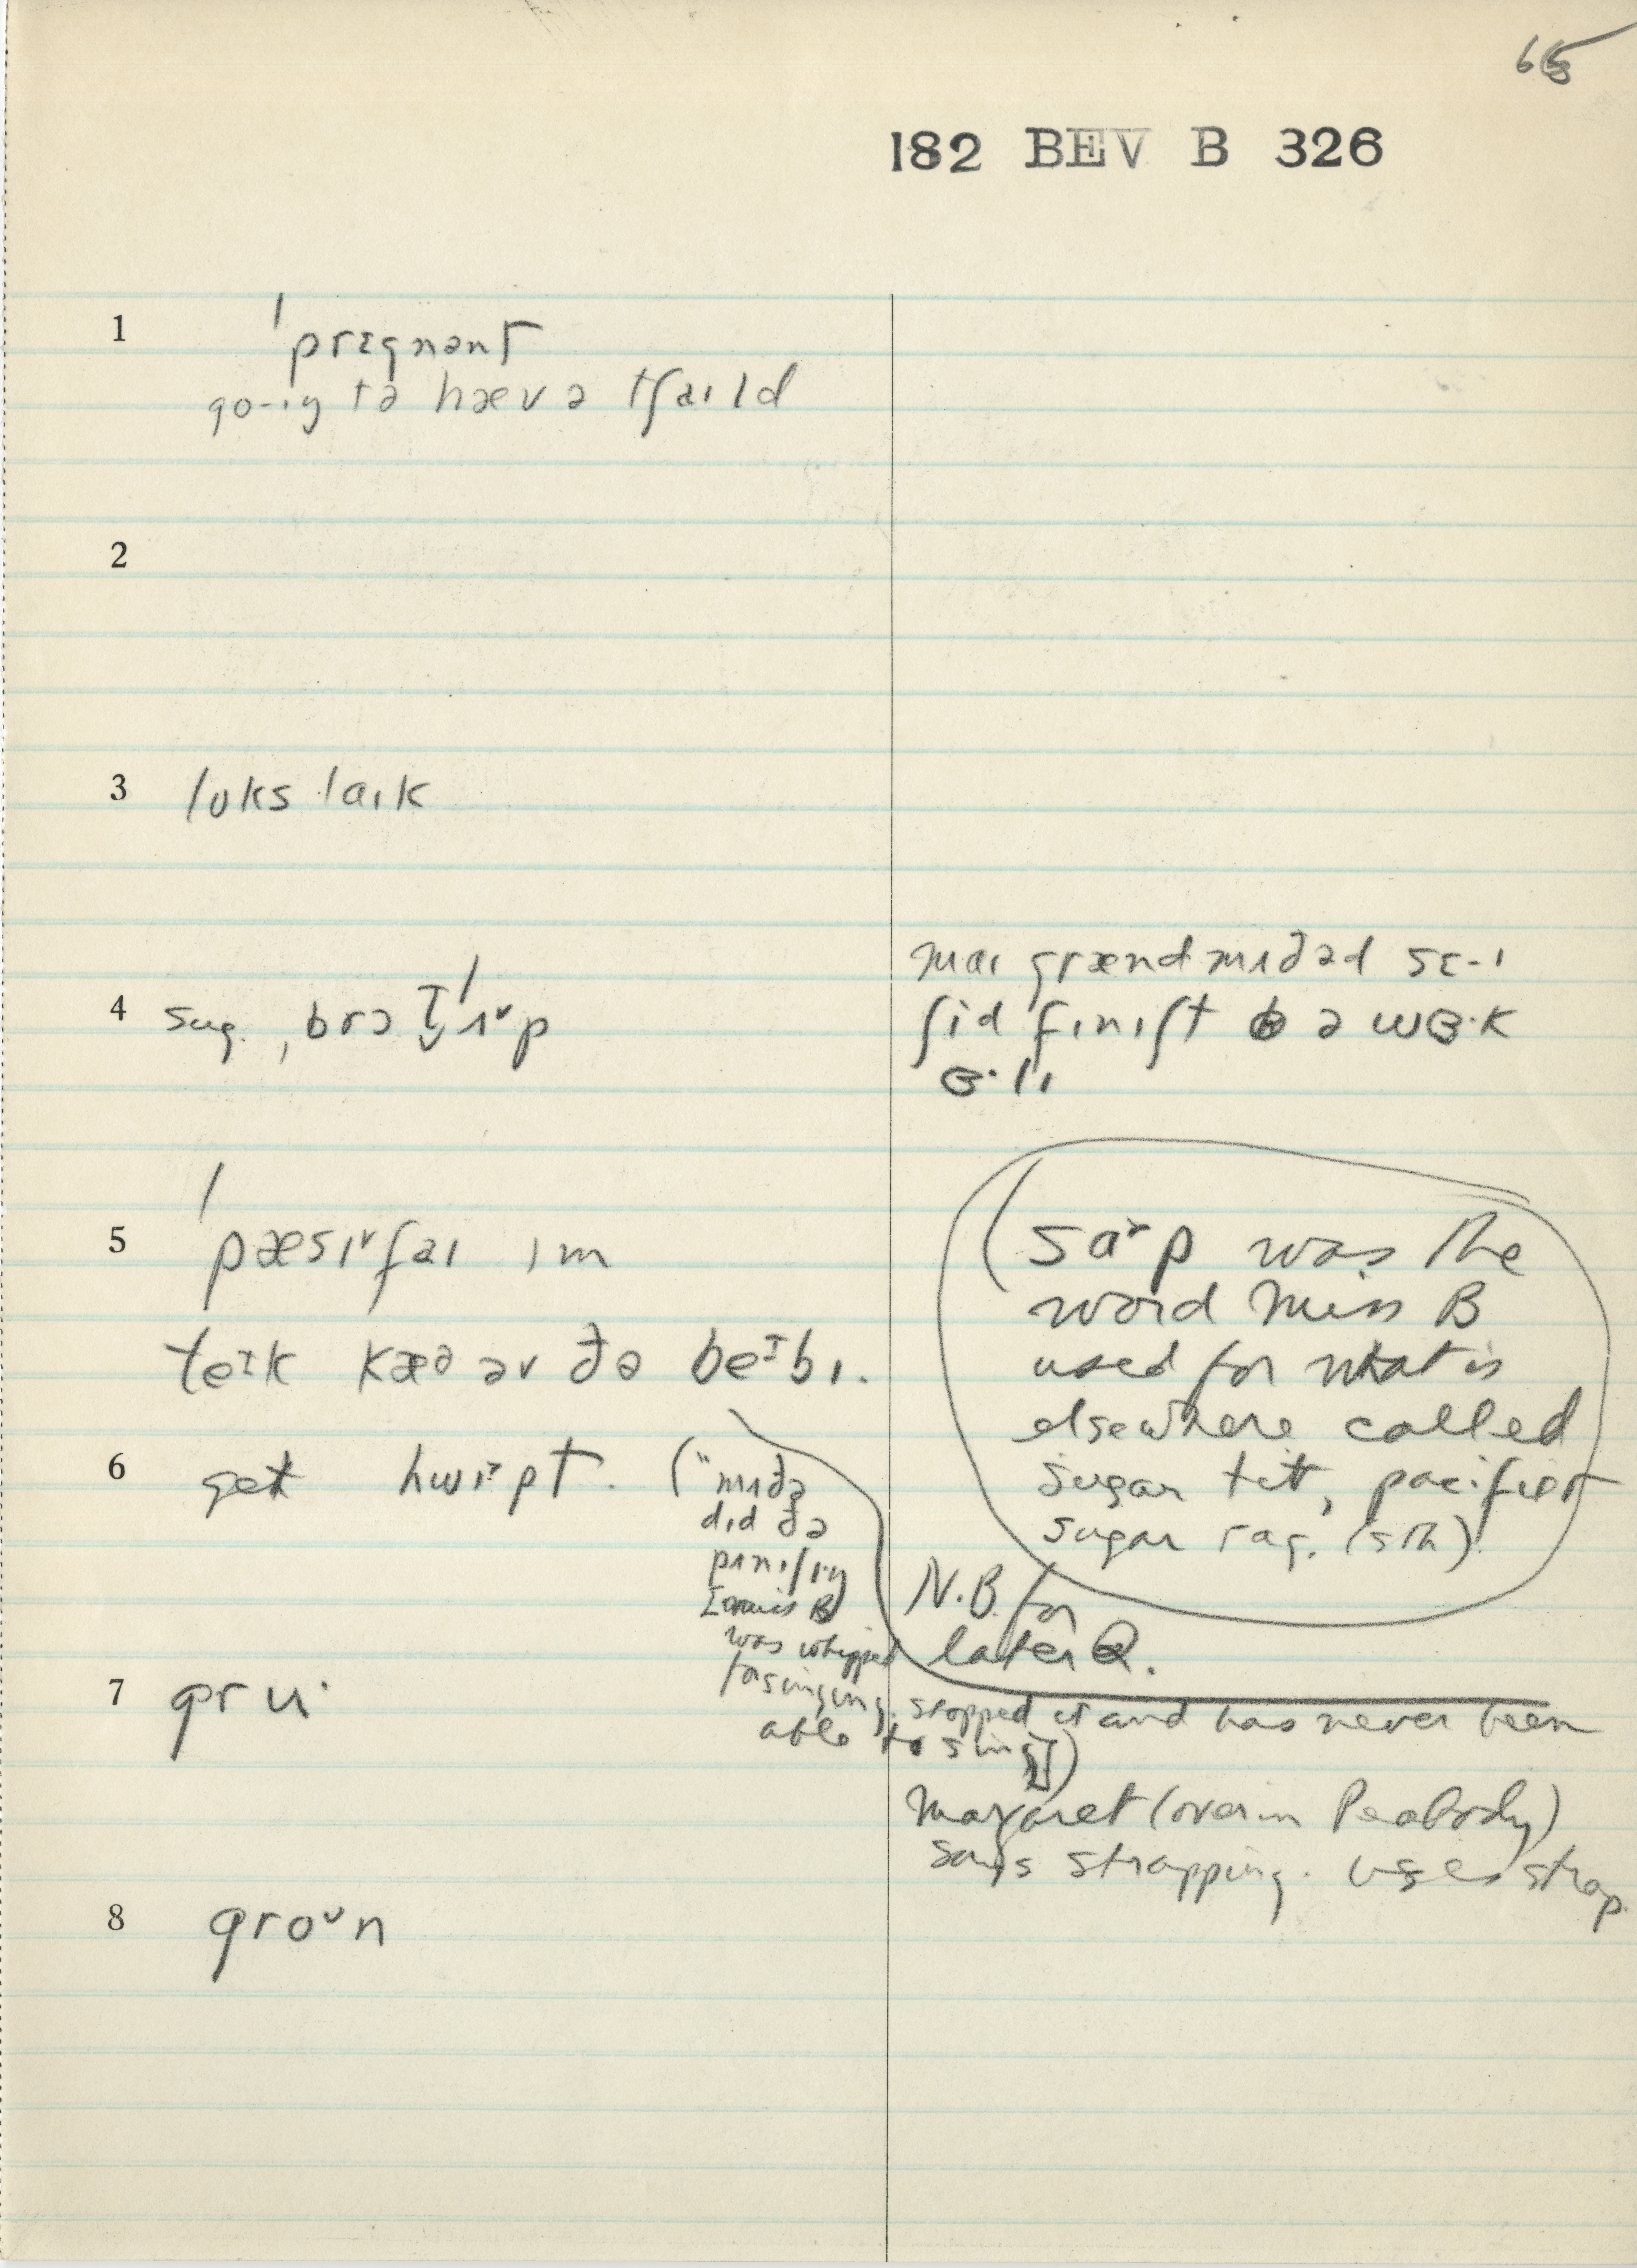 65
182 BEV B 326
1 ˈprɛgnənt
go-ɪŋ tə hæv ə tʃaɪld
2
3 lʊks laɪk
4 sug. ,brɔt ˈʌᵛp
maɪ grændmʌðəd sɛ-ɪ
ʃid fɪnɪʃt ə wɜ·k
ɜ·lɪ
5 ˈpæsɪᵛfaɪ ɪm
teᶦk kæə əv ðə beᶦbɪ.
(saᵛp was the
word Miss B
used for what is
elsewhere called
sugar tit, pacifier
sugar rag. (sth)
N.B. for
later Q.
6 get hwɪᵛpt. ("mʌðə
dɪd ðə
pʌnɪʃɪŋ
[Miss B
was whipped
for singing. stopped it and has never been
able to sing])
7 gru·
Margaret (over in Peabody)
says strapping. uses strap.
8 groᶹn